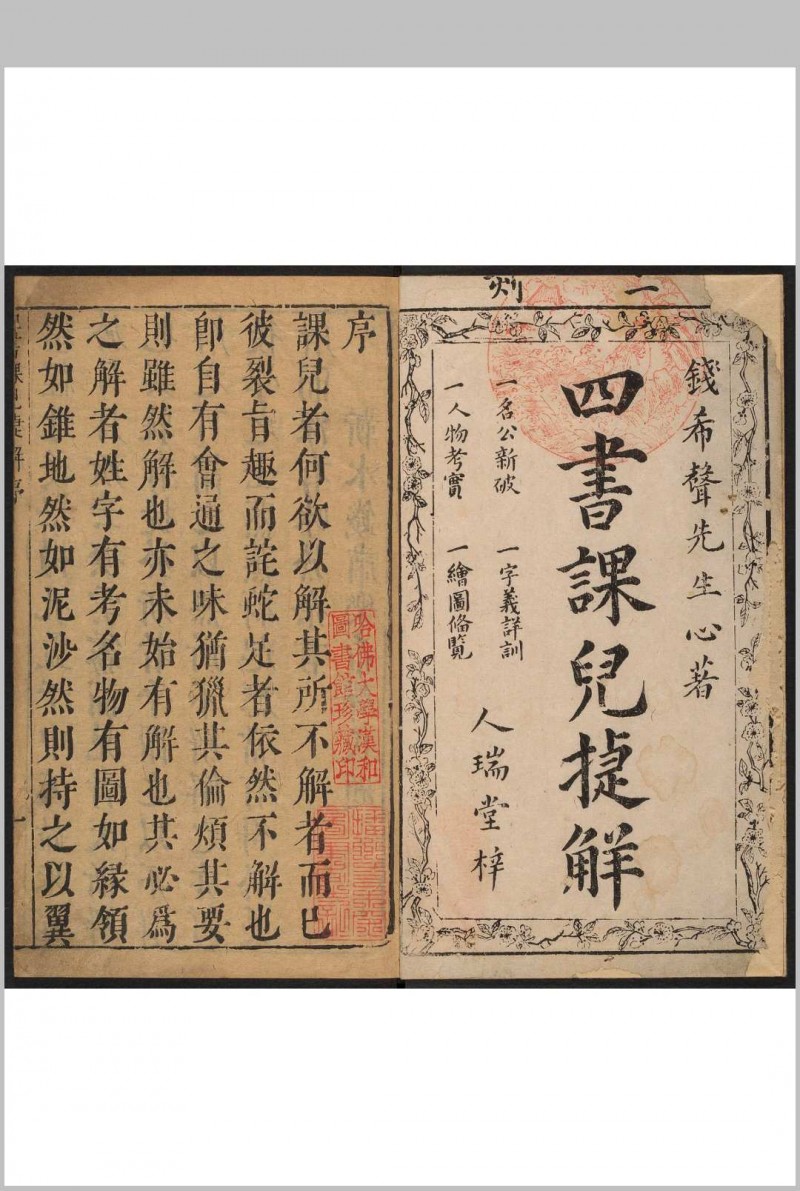 二刻
錢希聲先生心著
四書課兒捷解
一名公新破
一字義詳訓
一人物考實
一繪圖俻覽
人瑞堂梓
序
課兒者何欲以解其所不解者而已
彼裂旨趣而詫蛇足者依然不解也
卽自有會通之味猶獵其倫煩其要
則雖然解也亦未始有解也其必爲
之解者姓字有考名物有圖如緣領
然如錐地然如泥沙然則持之以翼
哈佛大學漢和
圖書館珍藏印
四書課兒捷解 序
一